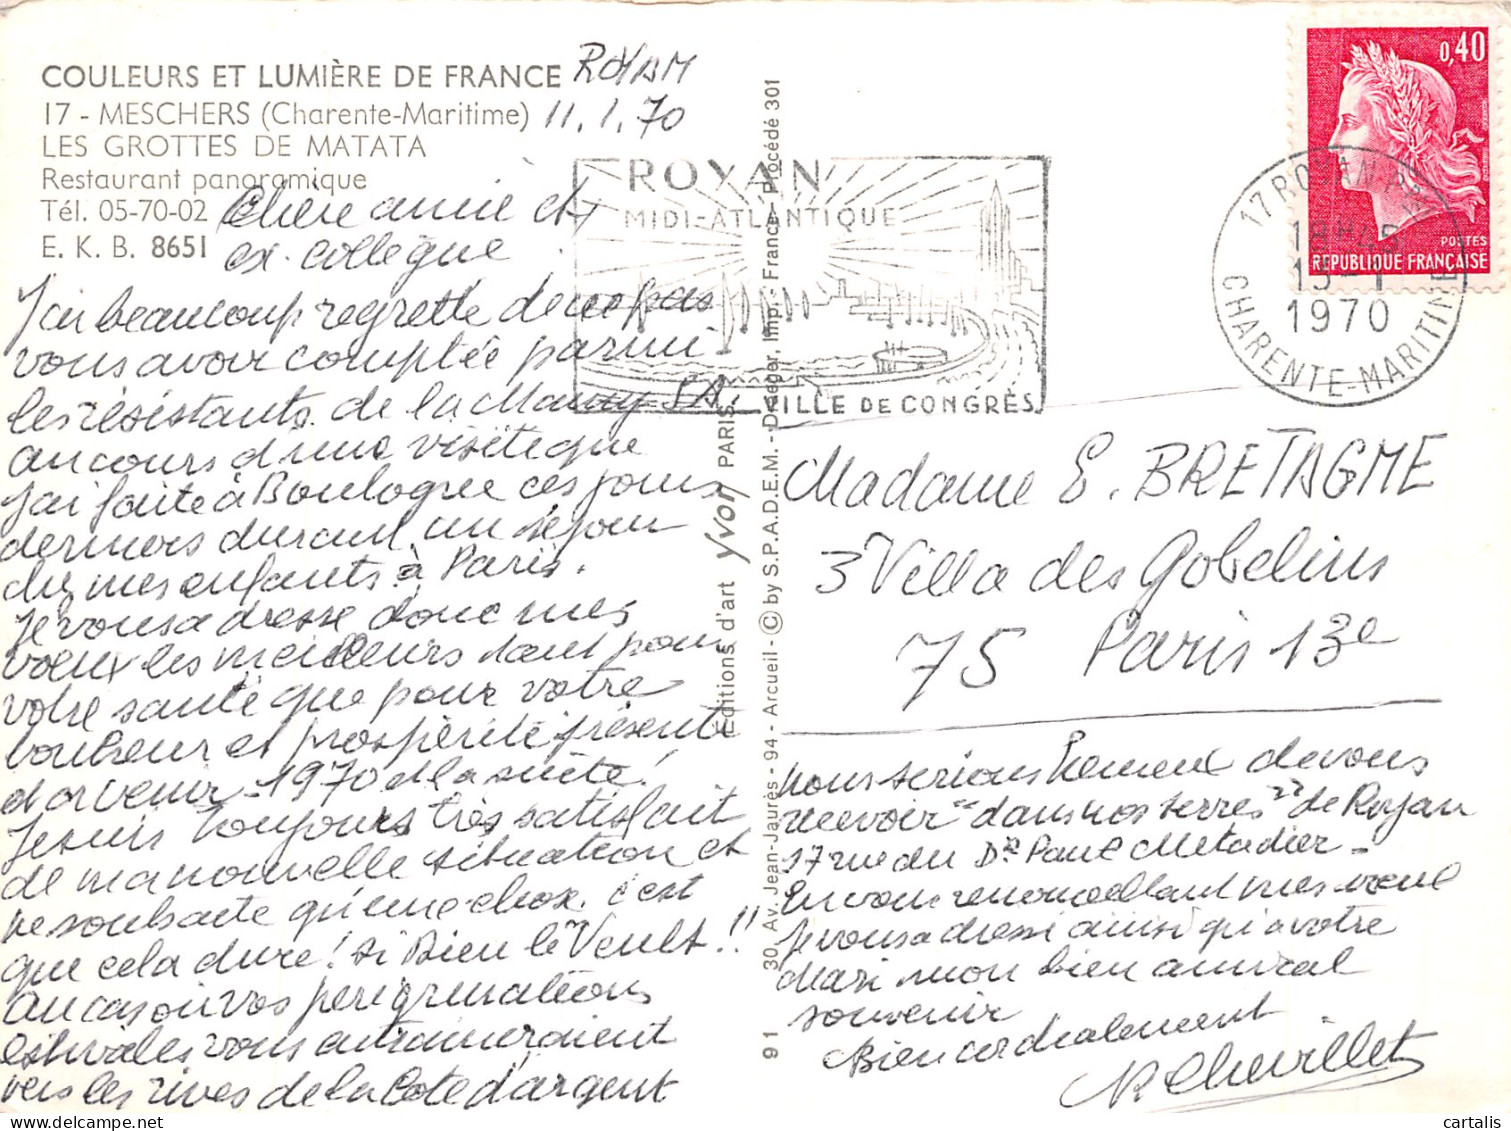 COULEURS ET LUMIÈRE DE FRANCE
17 - MESCHERS (Charente-Maritime)
LES GROTTES DE MATATA
Restaurant panoramique
Tél. 05-70-02
E. K. B. 8651
ROYAN
11.1.70
Chère amie et
ex. collègue
J'ai beaucoup regretté de ne pas
vous avoir comptée parmi
les résistants de la
au cours d'une visite que
j'ai faite à Boulogne ces jours
derniers durant un séjour
chez mes enfants à Paris.
Je vous adresse donc mes
vœux les meilleurs tant pour
votre santé que pour votre
bonheur et prospérité présente
et à venir - 1970 et la suite!
Je suis toujours très satisfait
de ma nouvelle situation et
ne souhaite qu'une chose. c'est
que cela dure! si Dieu le Veult!!
Au cas où vos pérégrinations
estivales vous entraineraient
vers les rives de la Côte d'argent
nous serions heureux de vous
recevoir "dans nos terres" de Royan
17 rue du Dr Paul Métadier -
En vous renouvellant mes vœux
je vous adresse ainsi qu'à votre
Mari mon bien amical
souvenir
Bien cordialement
Chevillet
Madame E. BRETAGNE
3 Villa des Gobelins
75 Paris 13e
Éditions d'art yvon PARIS
9 1 30, Av. Jean-Jaurès - 94 - Arcueil - © by S.P.A.D.E.M. - Draeger, Imp. - France - Procédé 301
ROYAN
MIDI-ATLANTIQUE
VILLE DE CONGRÈS
17 ROYAN
18H45
13-1
1970
CHARENTE-MARITIME
0,40
POSTES
REPUBLIQUE FRANÇAISE
cartalis.com